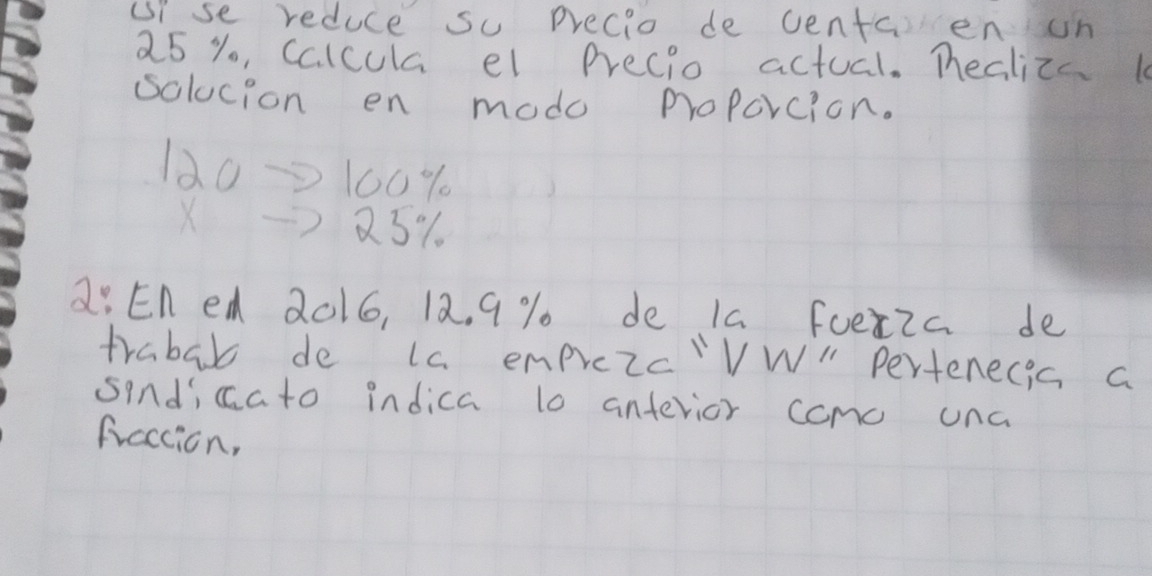 si se reduce su precio de venta en un
25 %, calcula el precio actual. Realiza
solucion en modo proporcion.
120 → 100%
x → 25%
2: En en 2016, 12.9% de la fuerza de
trabab de la empreza "VW" pertenecia a
sindicato indica lo anterior como una
fraccion.